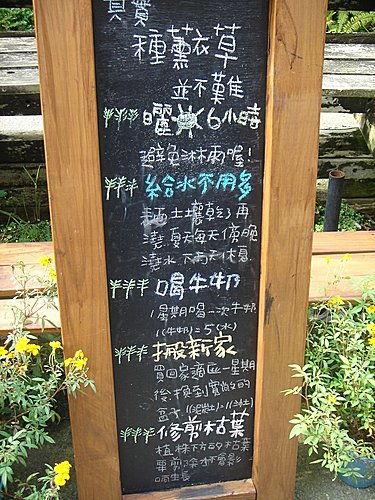 其實
種薰衣草
並不難
曬 6小時
避免淋雨喔!
給水不用多
土壤乾了再
澆夏天每天傍晚
澆水 下雨天休息
喝牛奶
1星期喝一次牛奶
1(牛奶)=5(水)
搬新家
買回家適應一星期
後換到寬松的
盆子
修剪枯葉
植株下方的枯葉
要剪除
生長